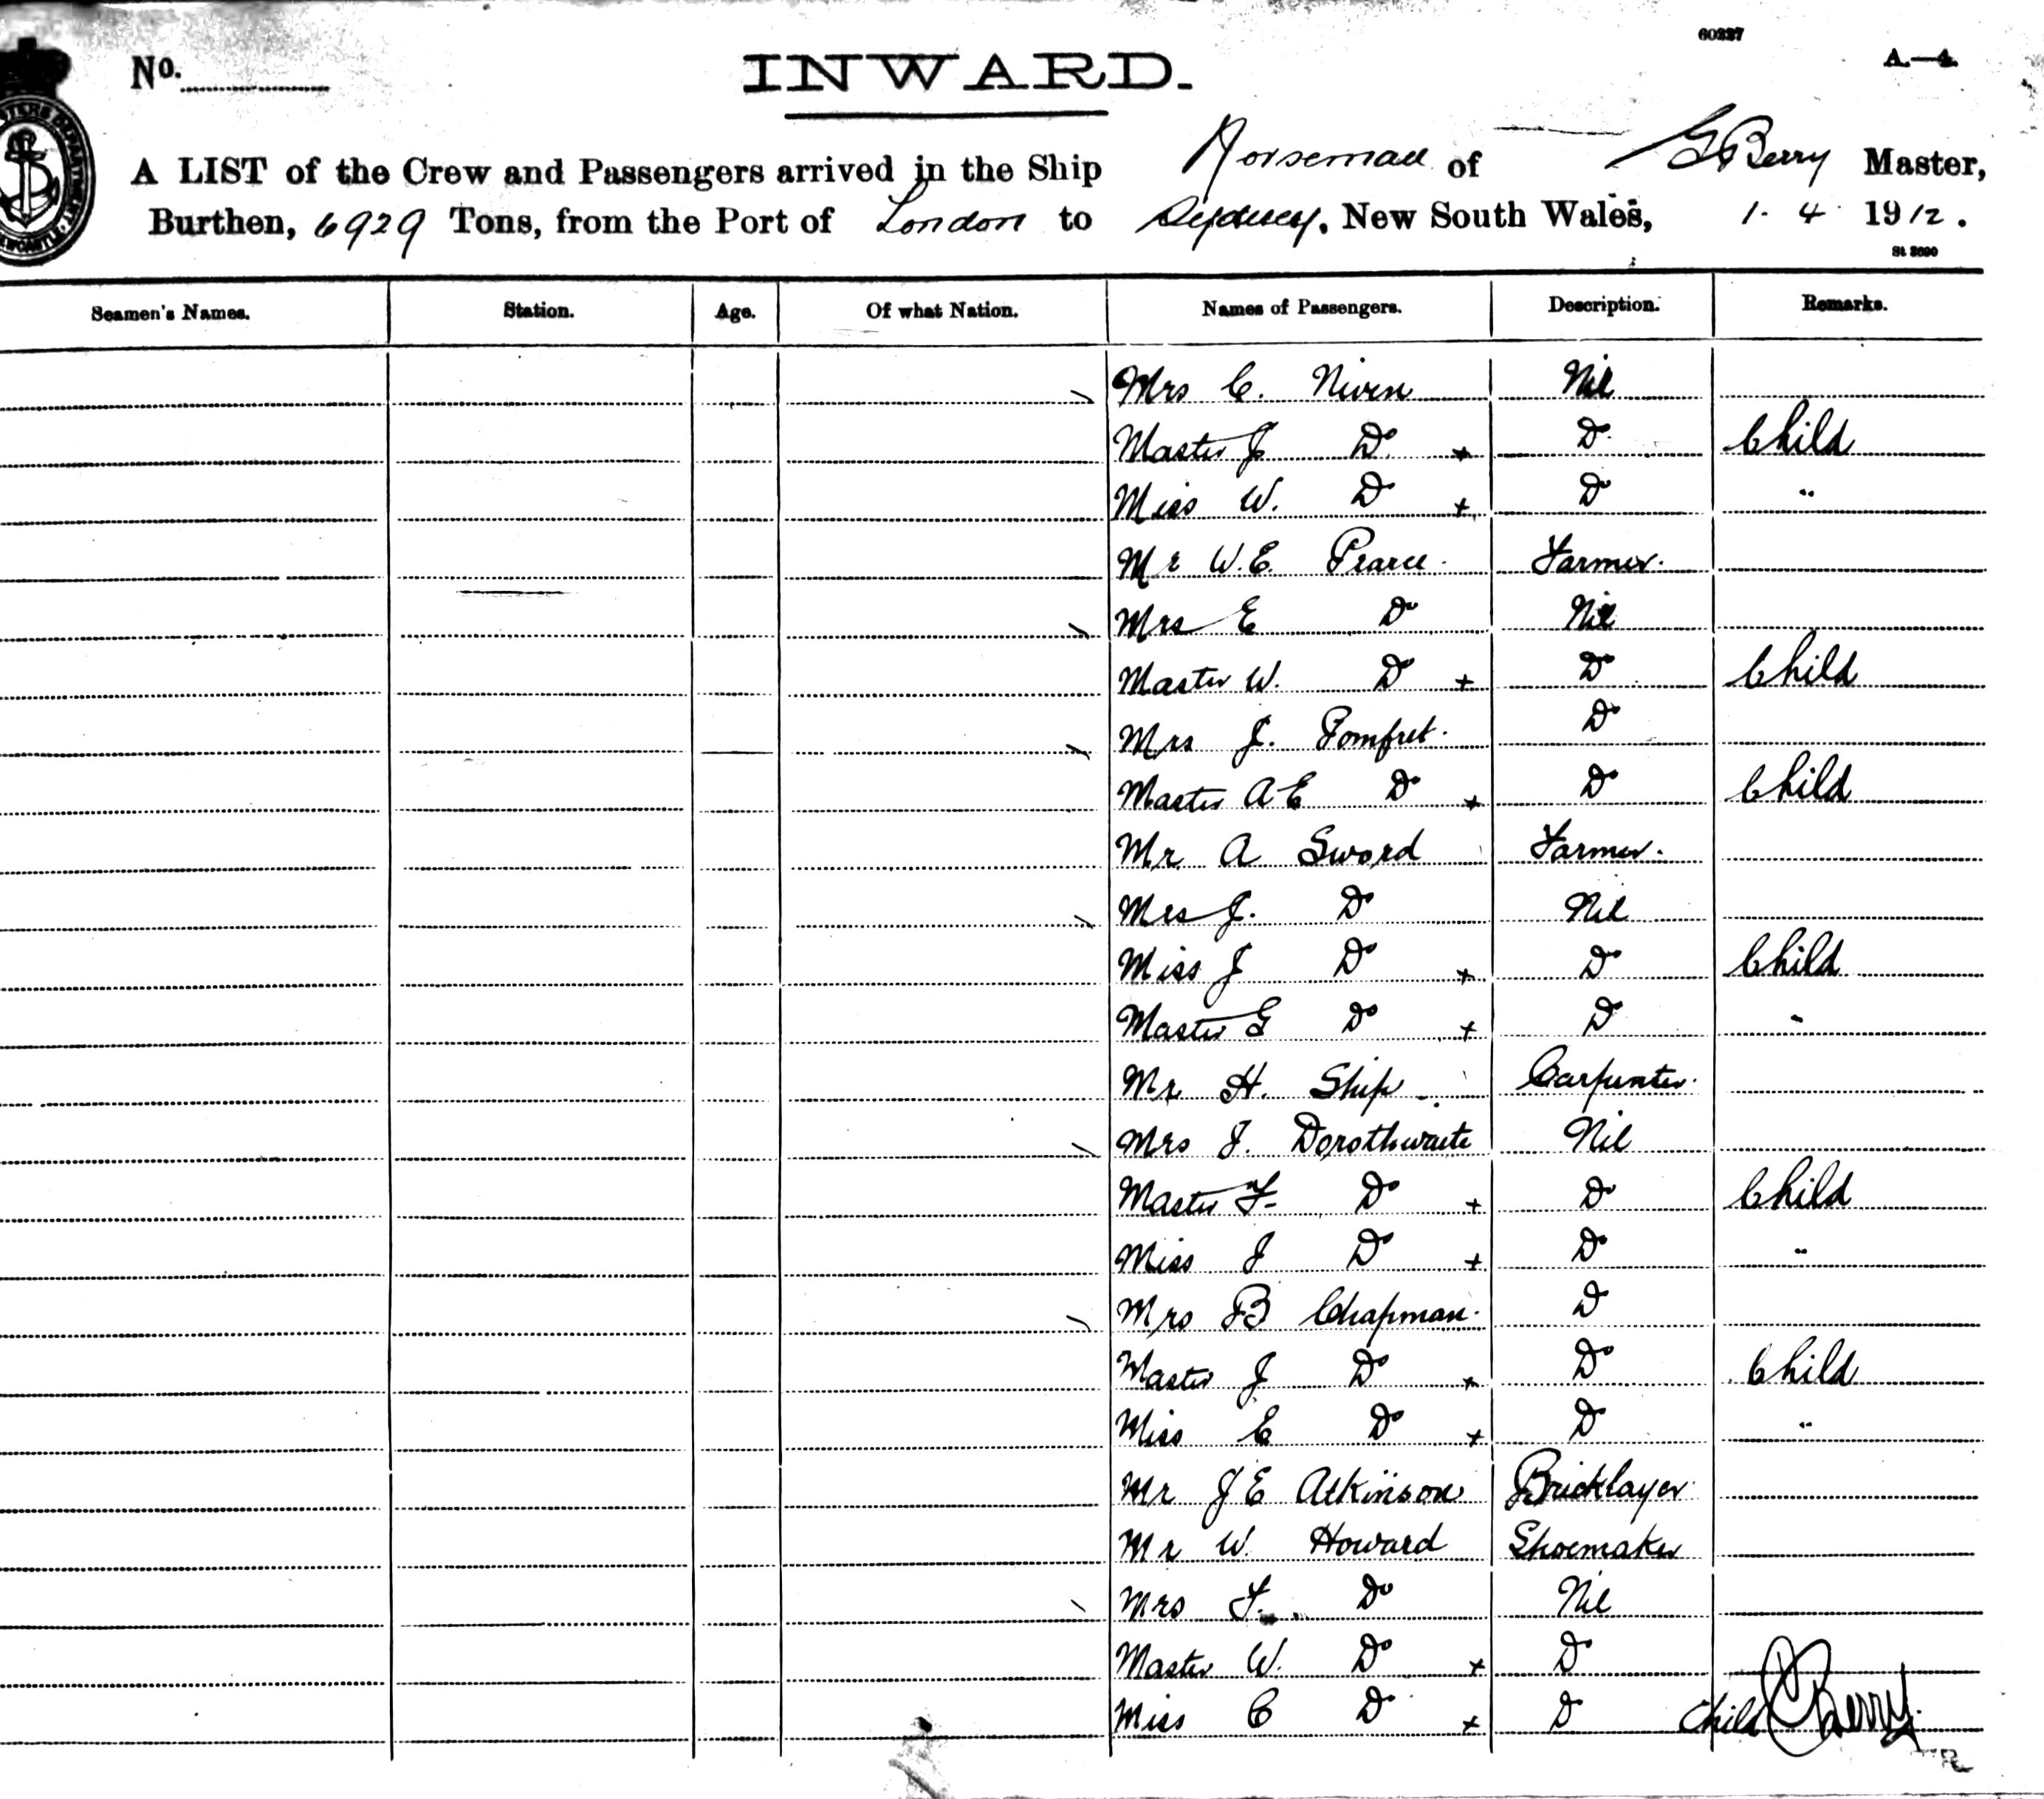 60227
A.—4.
No.
INWARD.
A LIST of the Crew and Passengers arrived in the Ship Norseman of G Berry Master,
Burthen, 6929 Tons, from the Port of London to Sydney, New South Wales, 1. 4. 1912.
St 2690
Seamen's Names. Station. Age. Of what Nation. Names of Passengers. Description. Remarks.
Mrs C. Niven Nil
Master J Do + Do Child
Miss W. Do + Do "
Mr W.E. Pearce Farmer.
Mrs E Do Nil
Master W. Do + Do Child
Mrs J. Pomfret. Do
Master A E Do + Do Child
Mr A Sword Farmer.
Mrs J. Do Nil
Miss J Do + Do Child
Master G Do + Do "
Mr H. Ship Carpenter.
Mrs J. Dorothwaite Nil
Master F. Do + Do Child
Miss J Do + Do "
Mrs B Chapman. Do
Master J Do + Do Child
Miss E Do + Do "
Mr J E Atkinson Bricklayer
Mr W. Howard Shoemaker
Mrs F. Do Nil
Master W. Do + Do
Miss C Do + Do Child Berry